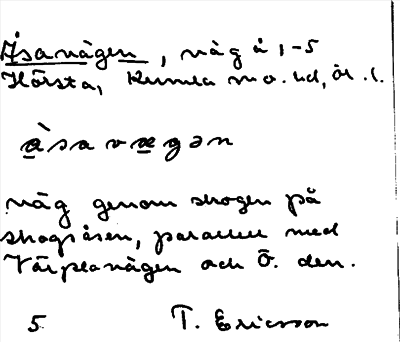 Åsavägen, väg å 1-5
Hörsta, Kumla m o. hd, Ör. l.
å̀savægən
väg genom skogen på
skogsåsen, parallell med
Värplavägen och Ö. den.
5 T. Ericsson